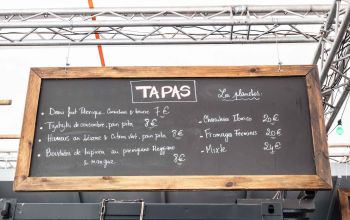 TAPAS
Les planches
- Demi fuet Iberique, Cornichons & beurre 7 €
- Tzatziki de concombre, pain pita 8 €
- Houmous au Sésame & Citron vert, pain pita 8 €
- Bouchées de tapioca au parmigiano Reggiano
& mangue 8 €
- Charcuterie Iberico 20 €
- Fromages Fermiers 20 €
- Mixte 24 €